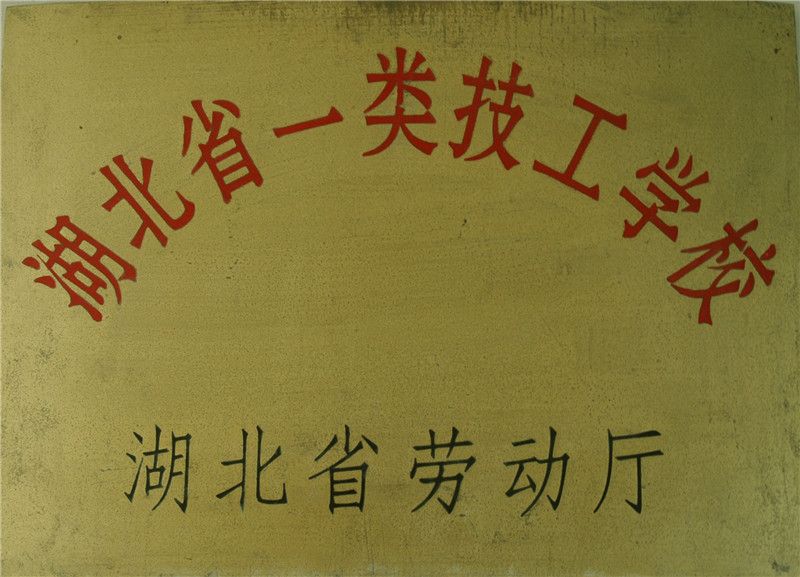 湖北省一类技工学校
湖北省劳动厅